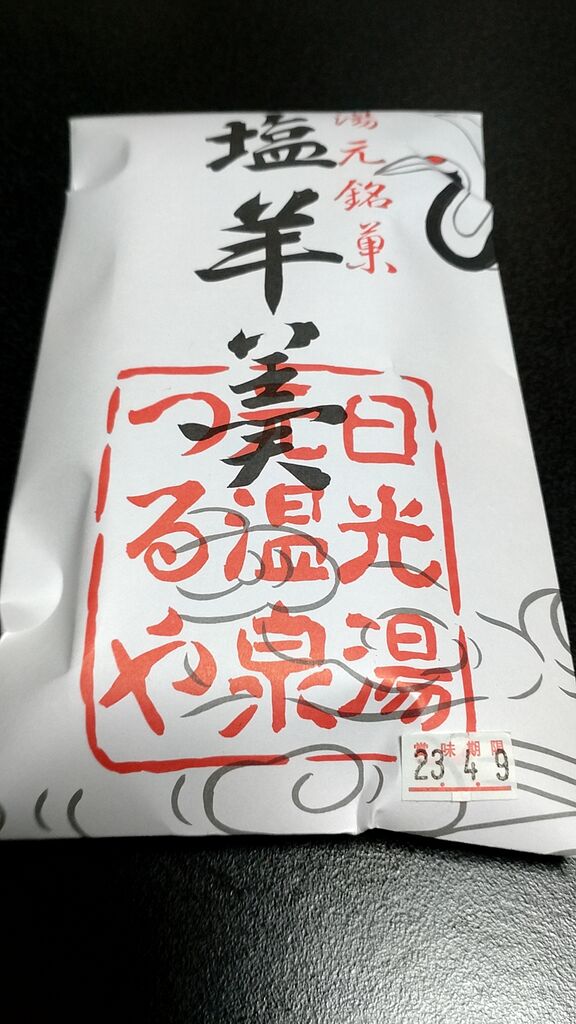 湯元銘菓
塩羊羹
日光湯
元温泉
つるや
賞味期限
23.4.9